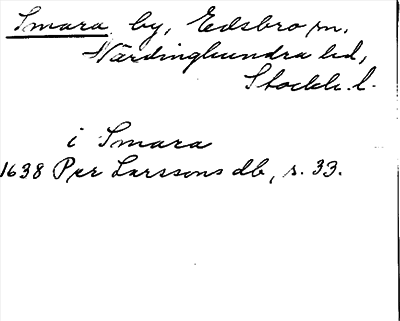 Smara by, Edsbro sn.
Närdinghundra hd,
Stockh. l.
i Smara
1638 Per Larssons db, s. 33.